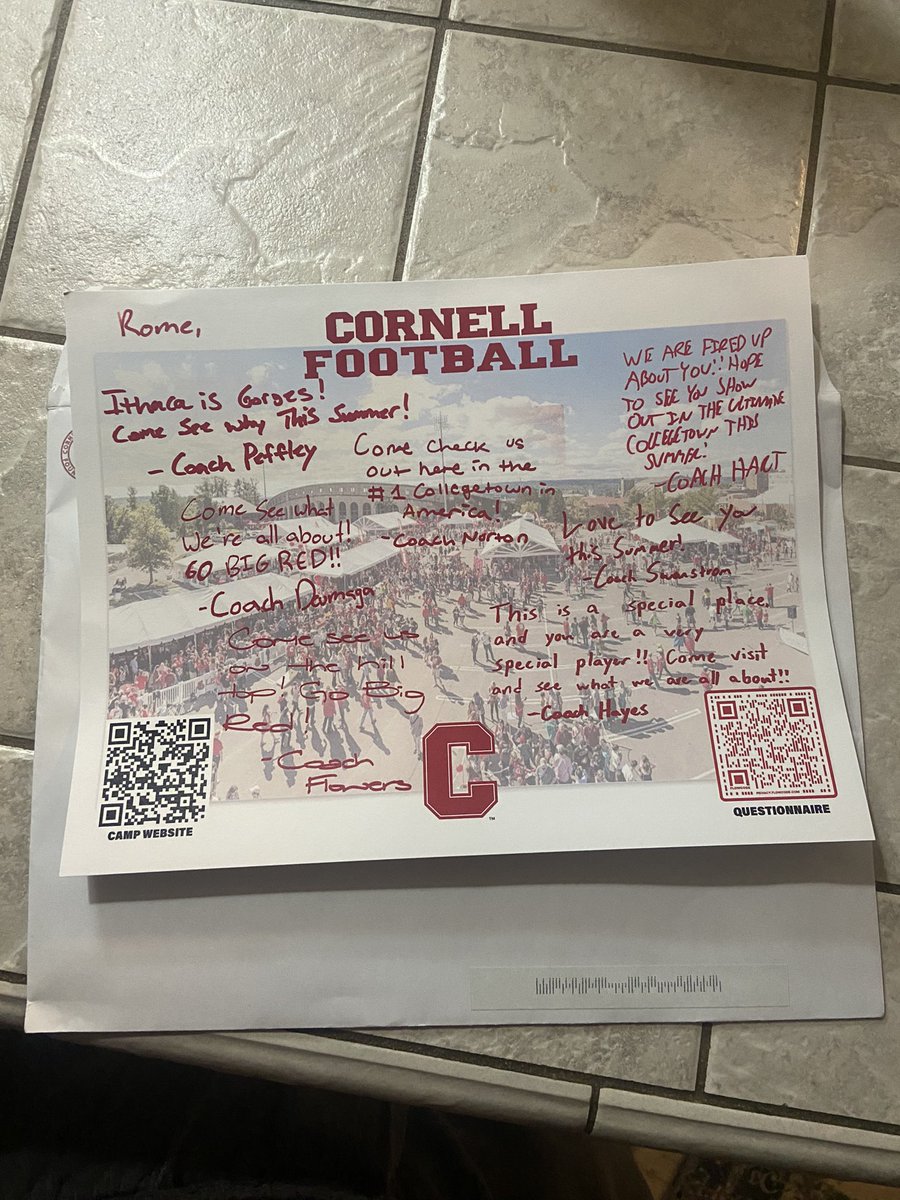 Rome,
CORNELL
FOOTBALL
Ithaca is Gorges!
Come See why This Summer!
- Coach Peffley
WE ARE FIRED UP
ABOUT YOU!! HOPE
TO SEE YOU SHOW
OUT IN THE ULTIMATE
COLLEGETOWN THIS
SUMMER!
- COACH HART
Come check us
out here in the
#1 Collegetown in
America!
- Coach Norton
Come See what
We're all about!!
GO BIG RED!!
- Coach Doumaga
Love to See you
this Summer!
- Coach Swanstrom
This is a special place.
and you are a very
special player!! Come visit
and see what we are all about!!
- Coach Hayes
Come see us
on the hill
top! Go Big
Red!
- Coach
Flowers
C
TM
CAMP WEBSITE
QUESTIONNAIRE